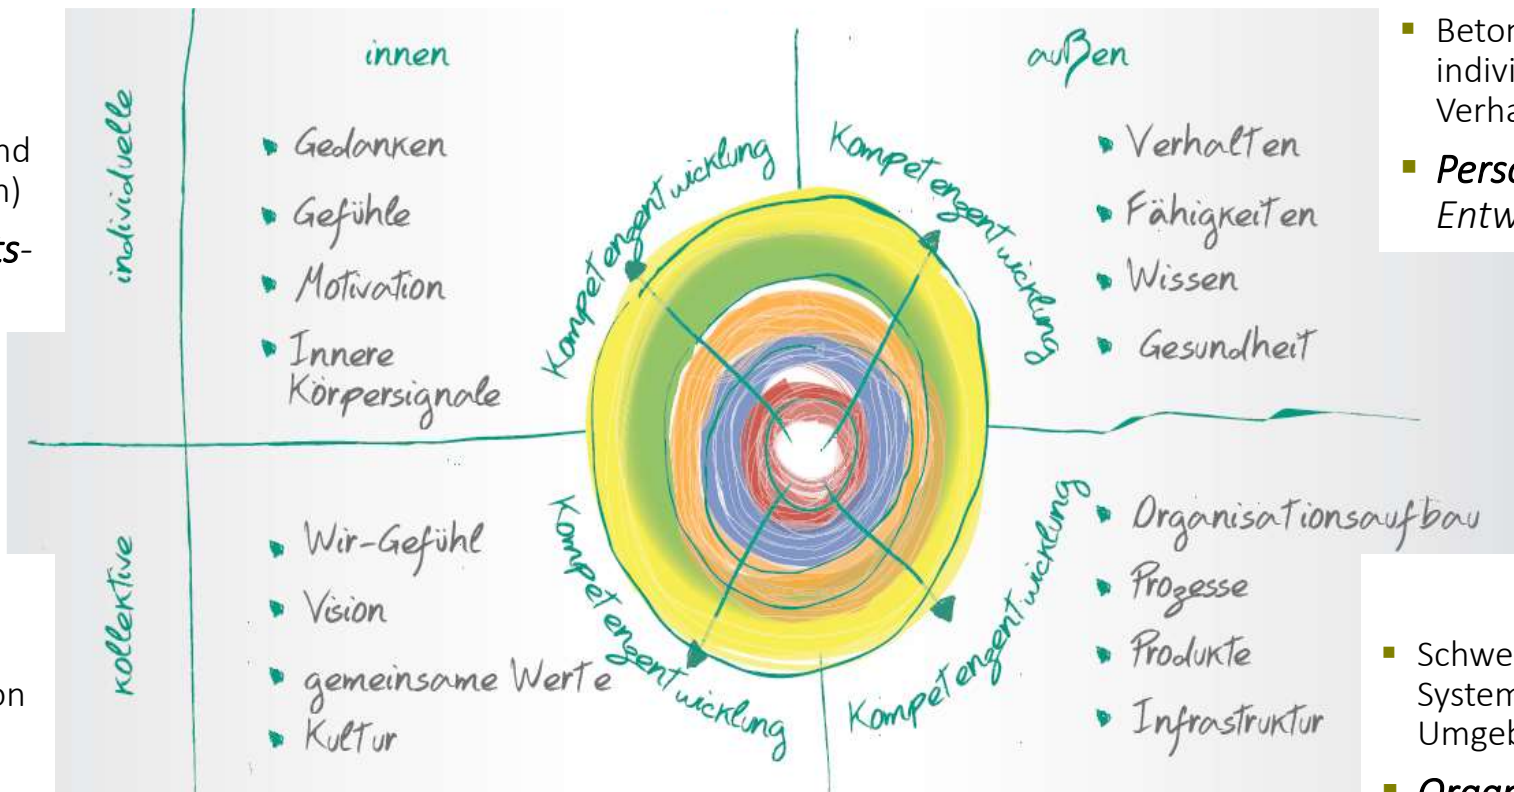 innen
außen
individuelle
Gedanken
Gefühle
Motivation
Innere
Körpersignale
Kompetenzentwicklung
Kompetenzentwicklung
Verhalten
Fähigkeiten
Wissen
Gesundheit
kollektive
Wir-Gefühl
Vision
gemeinsame Werte
Kultur
Kompetenzentwicklung
Kompetenzentwicklung
Organisationsaufbau
Prozesse
Produkte
Infrastruktur